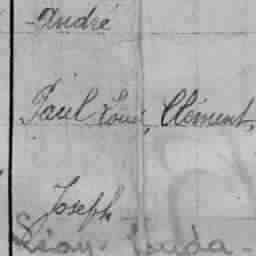 André
Paul Louis, Clément,
Joseph